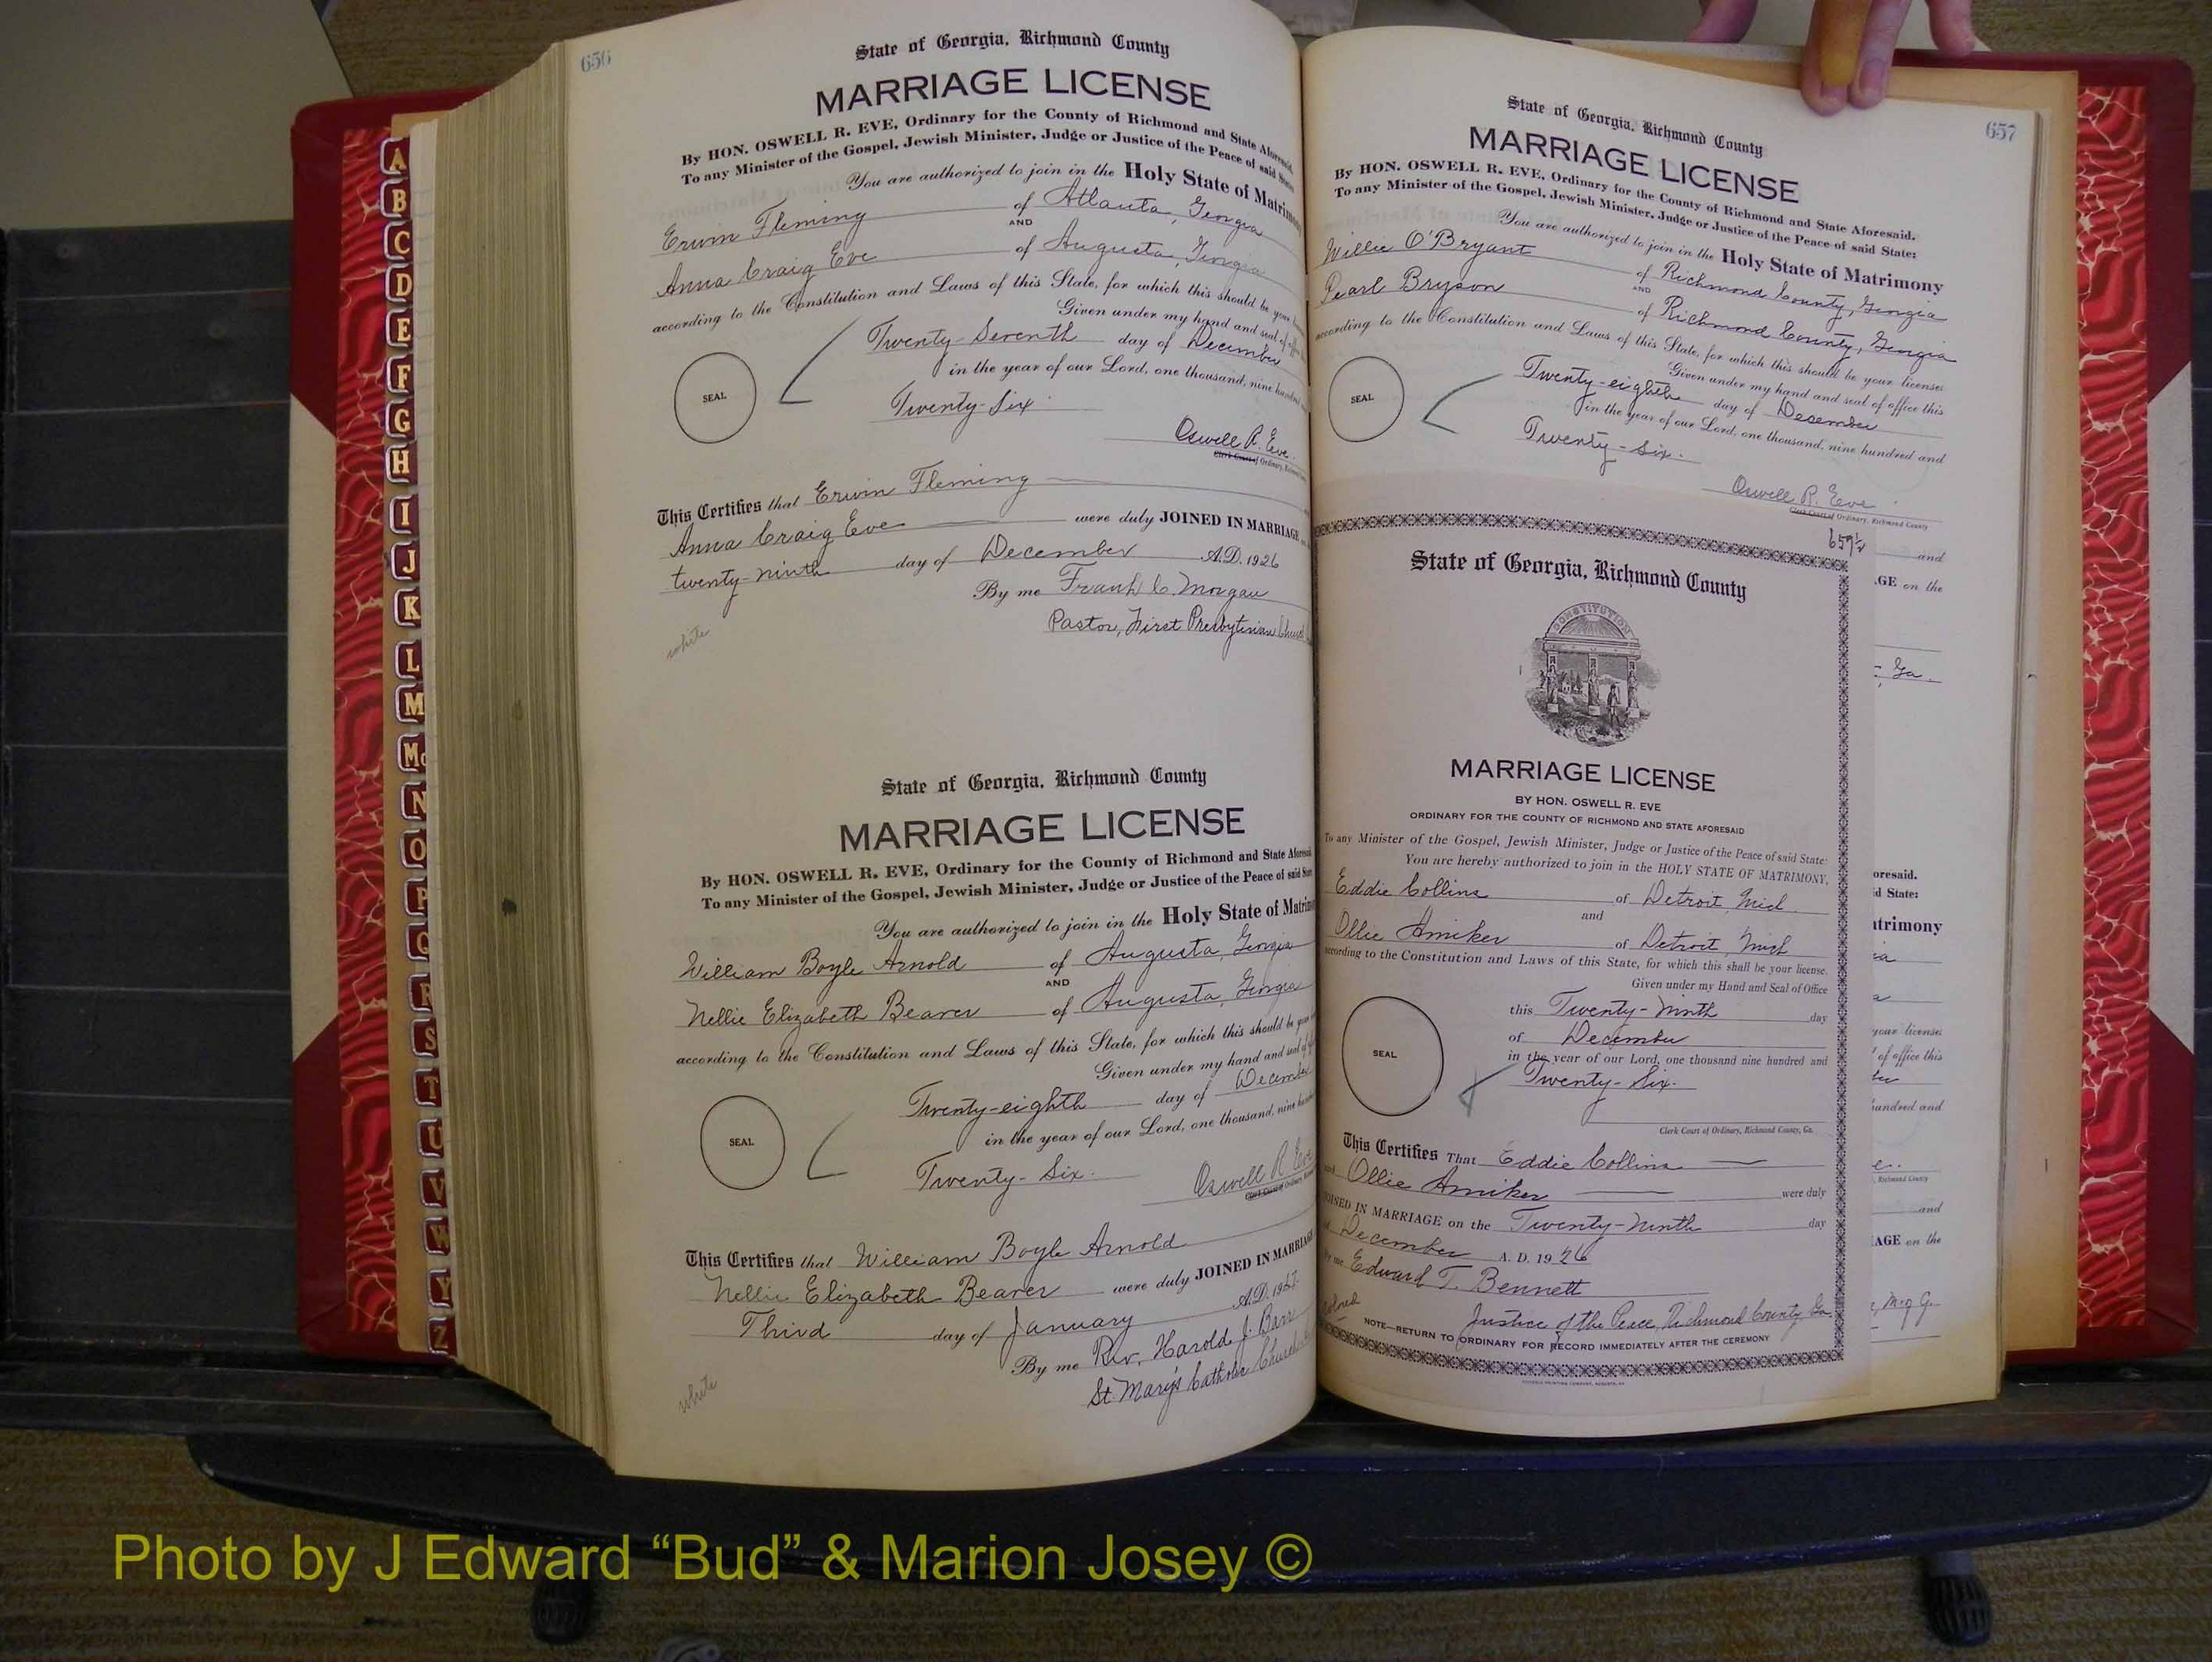 656
State of Georgia, Richmond County
MARRIAGE LICENSE
By HON. OSWELL R. EVE, Ordinary for the County of Richmond and State Aforesaid.
To any Minister of the Gospel, Jewish Minister, Judge or Justice of the Peace of said State
You are authorized to join in the Holy State of Matrimony
Erwin Fleming of Atlanta, Georgia
AND
Anna Craig Eve of Augusta, Georgia
according to the Constitution and Laws of this State, for which this should be your
Given under my hand and seal of
Twenty-Seventh day of December
in the year of our Lord, one thousand, nine hundred
SEAL
Twenty-Six
Oswell R. Eve
Clerk Court of Ordinary,
This Certifies that Erwin Fleming
Anna Craig Eve were duly JOINED IN MARRIAGE
twenty-ninth day of December A.D. 1926
By me Frank C. Morgan
Pastor, First Presbyterian Church
white
State of Georgia, Richmond County
MARRIAGE LICENSE
By HON. OSWELL R. EVE, Ordinary for the County of Richmond and State
To any Minister of the Gospel, Jewish Minister, Judge or Justice of the Peace of said
You are authorized to join in the Holy State of
William Boyle Arnold of Augusta, Georgia
AND
Nellie Elizabeth Bearer of Augusta, Georgia
according to the Constitution and Laws of this State, for which this should be
Given under my hand and seal of
Twenty-eighth day of December
in the year of our Lord, one thousand, nine
SEAL
Twenty-Six.
Oswell R. Eve
Clerk Court of Ordinary,
This Certifies that William Boyle Arnold
Nellie Elizabeth Bearer were duly JOINED IN MARRIAGE
Third day of January A.D. 1927
By me Rev. Harold J. Barr
St. Mary's Catholic Church
white
657
State of Georgia, Richmond County
MARRIAGE LICENSE
By HON. OSWELL R. EVE, Ordinary for the County of Richmond and State Aforesaid.
To any Minister of the Gospel, Jewish Minister, Judge or Justice of the Peace of said State:
You are authorized to join in the Holy State of Matrimony
Willie O'Bryant of Richmond County, Georgia
AND
Pearl Bryson of Richmond County, Georgia
according to the Constitution and Laws of this State, for which this should be your licenses
Given under my hand and seal of office this
Twenty-eighth day of December
in the year of our Lord, one thousand, nine hundred and
SEAL
Twenty-six.
Oswell R. Eve
Clerk Court of Ordinary, Richmond County
657½
State of Georgia, Richmond County
CONSTITUTION
MARRIAGE LICENSE
BY HON. OSWELL R. EVE
ORDINARY FOR THE COUNTY OF RICHMOND AND STATE AFORESAID
To any Minister of the Gospel, Jewish Minister, Judge or Justice of the Peace of said State:
You are hereby authorized to join in the HOLY STATE OF MATRIMONY,
Eddie Collins of Detroit, Mich.
and
Ollie Amiker of Detroit, Mich
according to the Constitution and Laws of this State, for which this shall be your license.
Given under my Hand and Seal of Office
this Twenty-Ninth day
of December
in the year of our Lord, one thousand nine hundred and
SEAL
Twenty-Six.
Clerk Court of Ordinary, Richmond County, Ga.
This Certifies That Eddie Collins
and Ollie Amiker were duly
JOINED IN MARRIAGE on the Twenty-Ninth day
of December A. D. 1926
by me Edward T. Bennett
Justice of the Peace, Richmond County Ga.
Colored
NOTE—RETURN TO ORDINARY FOR RECORD IMMEDIATELY AFTER THE CEREMONY
and
GE on the
Ga.
oresaid.
d State:
trimony
your licenses
of office this
hundred and
Richmond County
and
AGE on the
M.O.G.
A
B
C
D
E
F
G
H
I
J
K
L
M
Mc
N
O
P
Q
R
S
T
U
V
W
Y
Z
Photo by J Edward “Bud” & Marion Josey ©